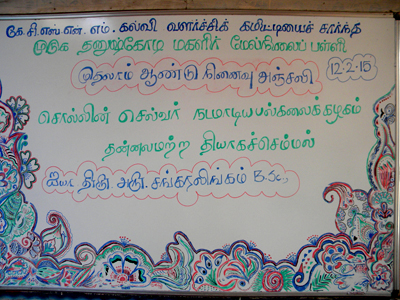 கே.சி.எஸ்.என்.எம். கல்வி வளர்ச்சிக் கமிட்டியைச் சார்ந்த
முருக தனுஷ்கோடி மகளிர் மேல்நிலைப் பள்ளி
முதலாம் ஆண்டு நினைவு அஞ்சலி
12.2.15
சொல்லின் செல்வர் நடமாடியபல்கலைக்கழகம்
தன்னலமற்ற தியாகச்செம்மல்
திரு. அரு. சங்கரலிங்கம் B.Sc.,